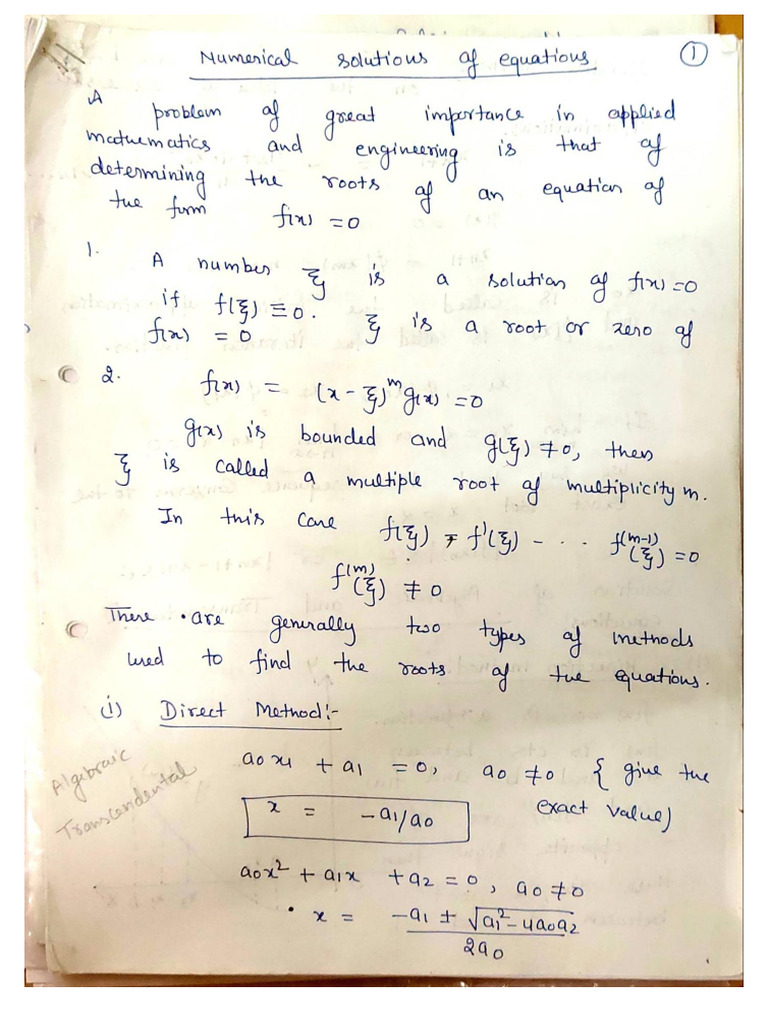 Numerical solutions of equations ①
A problem of great importance in applied
mathematics and engineering is that of
determining the roots of an equation of
the form f(x) = 0
1. A number ξ is a solution of f(x) = 0
if f(ξ) ≡ 0. ξ is a root or zero of
f(x) = 0
2. f(x) = (x - ξ)^m g(x) = 0
g(x) is bounded and g(ξ) ≠ 0, then
ξ is called a multiple root of multiplicity m.
In this case f(ξ) = f'(ξ) - ... f^(m-1)(ξ) = 0
f^(m)(ξ) ≠ 0
There are generally two types of methods
used to find the roots of the equations.
(i) Direct Method:-
Algebraic
Transcendental
a0x + a1 = 0, a0 ≠ 0 { give the
x = -a1/a0 exact value)
a0x² + a1x + a2 = 0, a0 ≠ 0
• x = -a1 ± √a1² - 4a0a2
2a0